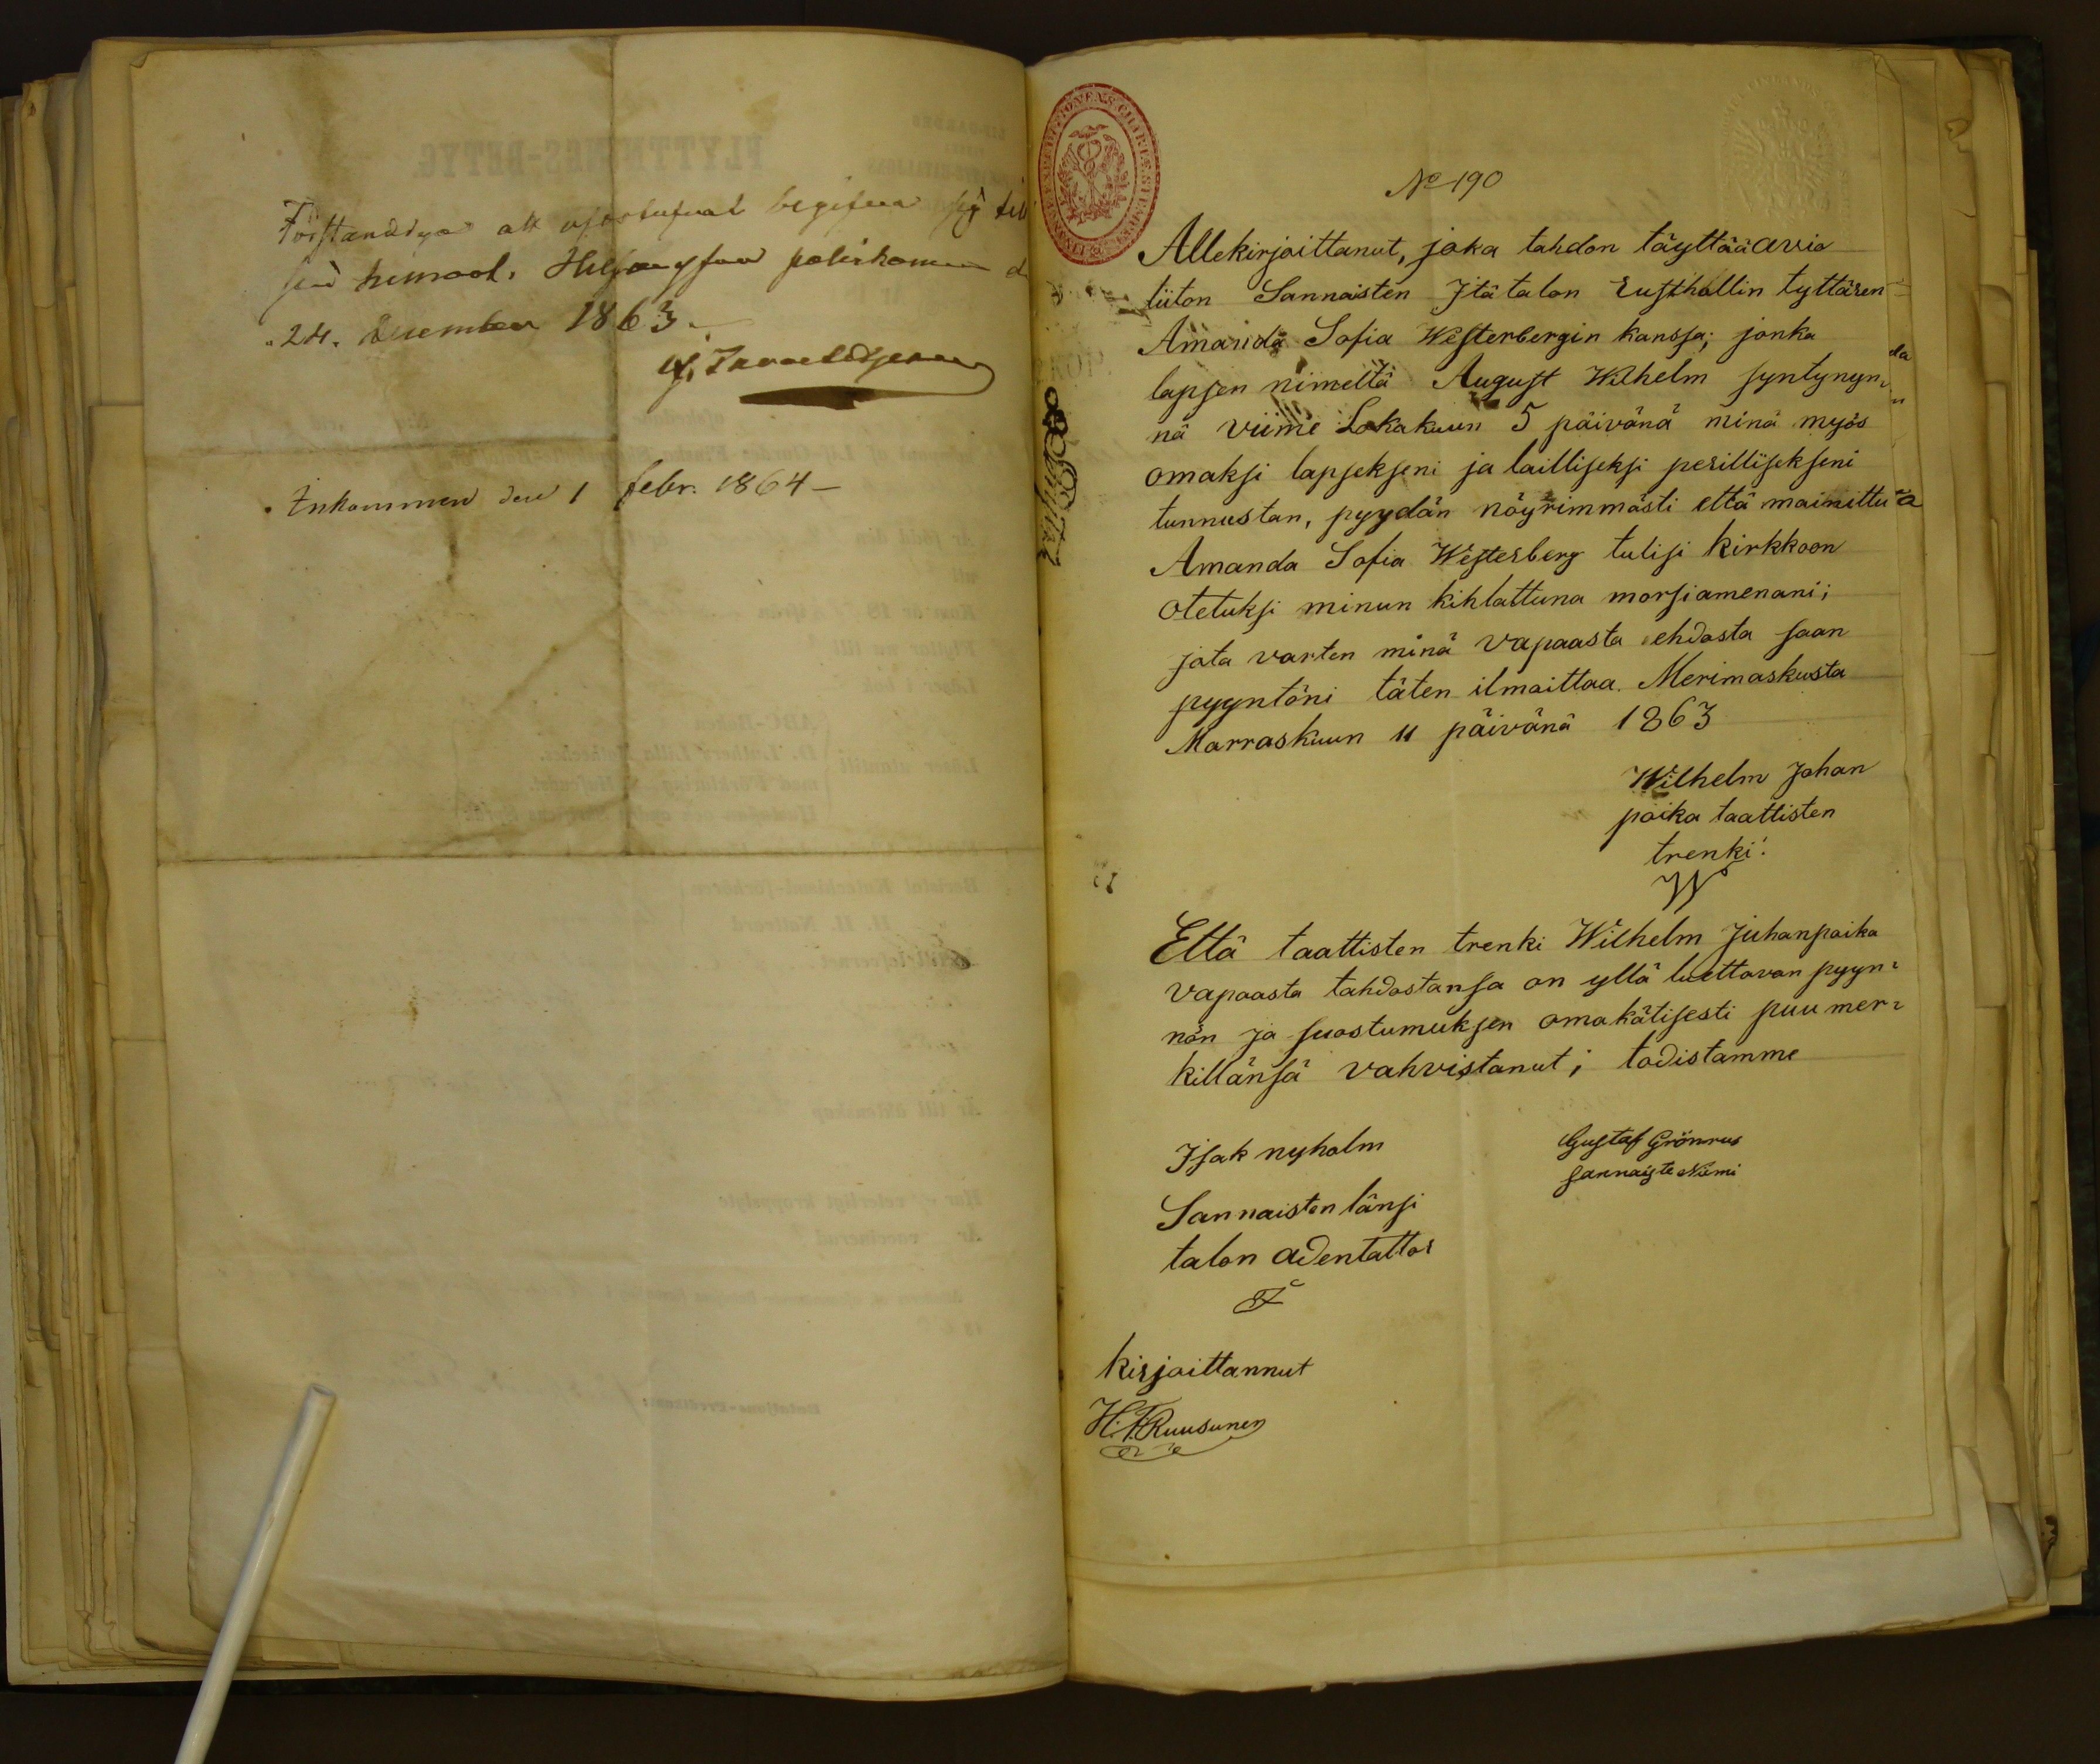 Förstanddigas att begifva sig till
sin hemort. Helsingfors poliskammare d
24. December 1863.
Inkommen den 1 febr. 1864 —
No 190
Allekirjoittanut, joka tahdon täyttää avio
liiton Sannaisten Itä talon Rusthollin tyttären
Amanda Sofia Westerbergin kanssa; jonka
lapsen nimeltä August Wilhelm syntynyn-
nä viime Lokakuun 5 päivänä minä myös
omaksi lapsekseni ja lailliseksi perillisekseni
tunnustan, pyydän nöyrimmästi että mainittu
Amanda Sofia Westerberg tulisi kirkkoon
otetuksi minun kihlattuna morsiamenani;
jota varten minä vapaasta ehdosta saan
pyyntöni täten ilmoittaa. Merimaskusta
Marraskuun 11 päivänä 1863
Wilhelm Johan
poika taattisten
trenki.
Että taattisten trenki Wilhelm Juhanpoika
vapaasta tahdostansa on yllä luettavan pyyn-
nön ja suostumuksen omakätisesti puu mer-
killänsä vahvistanut; todistamme
Isak nyholm
Sannaisten länsi
talon
Gustaf Grönrus
sannaiste Niemi
kirjoittannut
H. F. Ruusunen